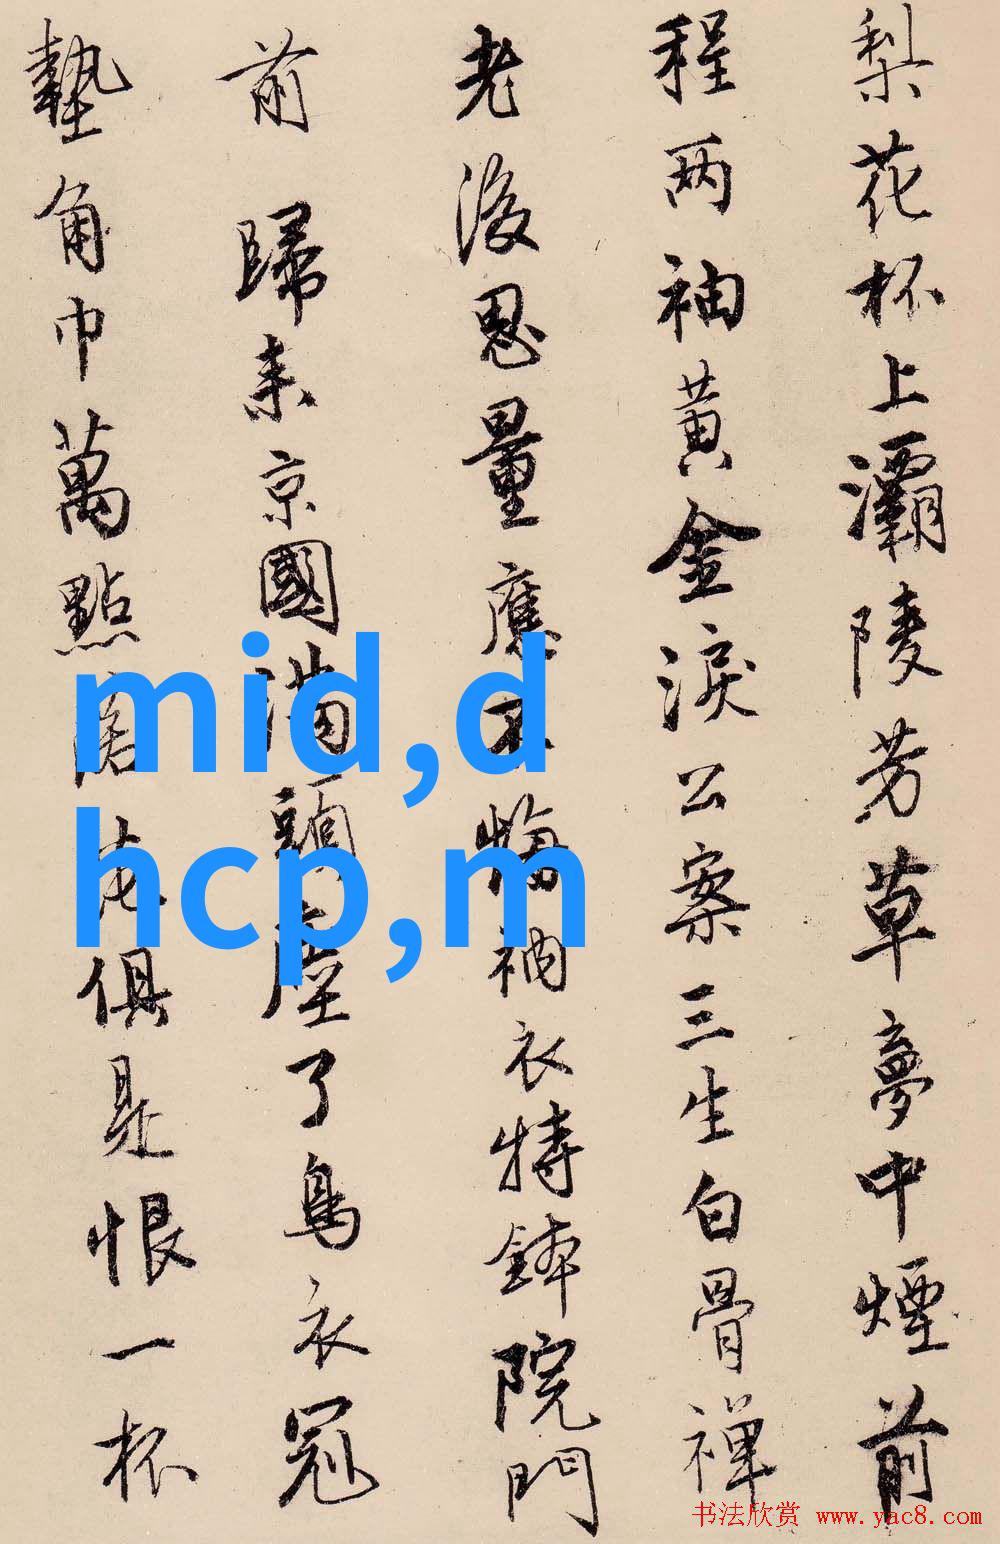 梨花杯上灞陵芳草夢中煙前
程两袖黄金淚公案三生白骨禅
老後思量應不悔衲衣持鉢院門
前 歸来京國満頭塵了鳥衣冠
墊角巾萬點落花俱是恨一杯
mid,d
hcp,m
书法欣赏 www.yac8.com